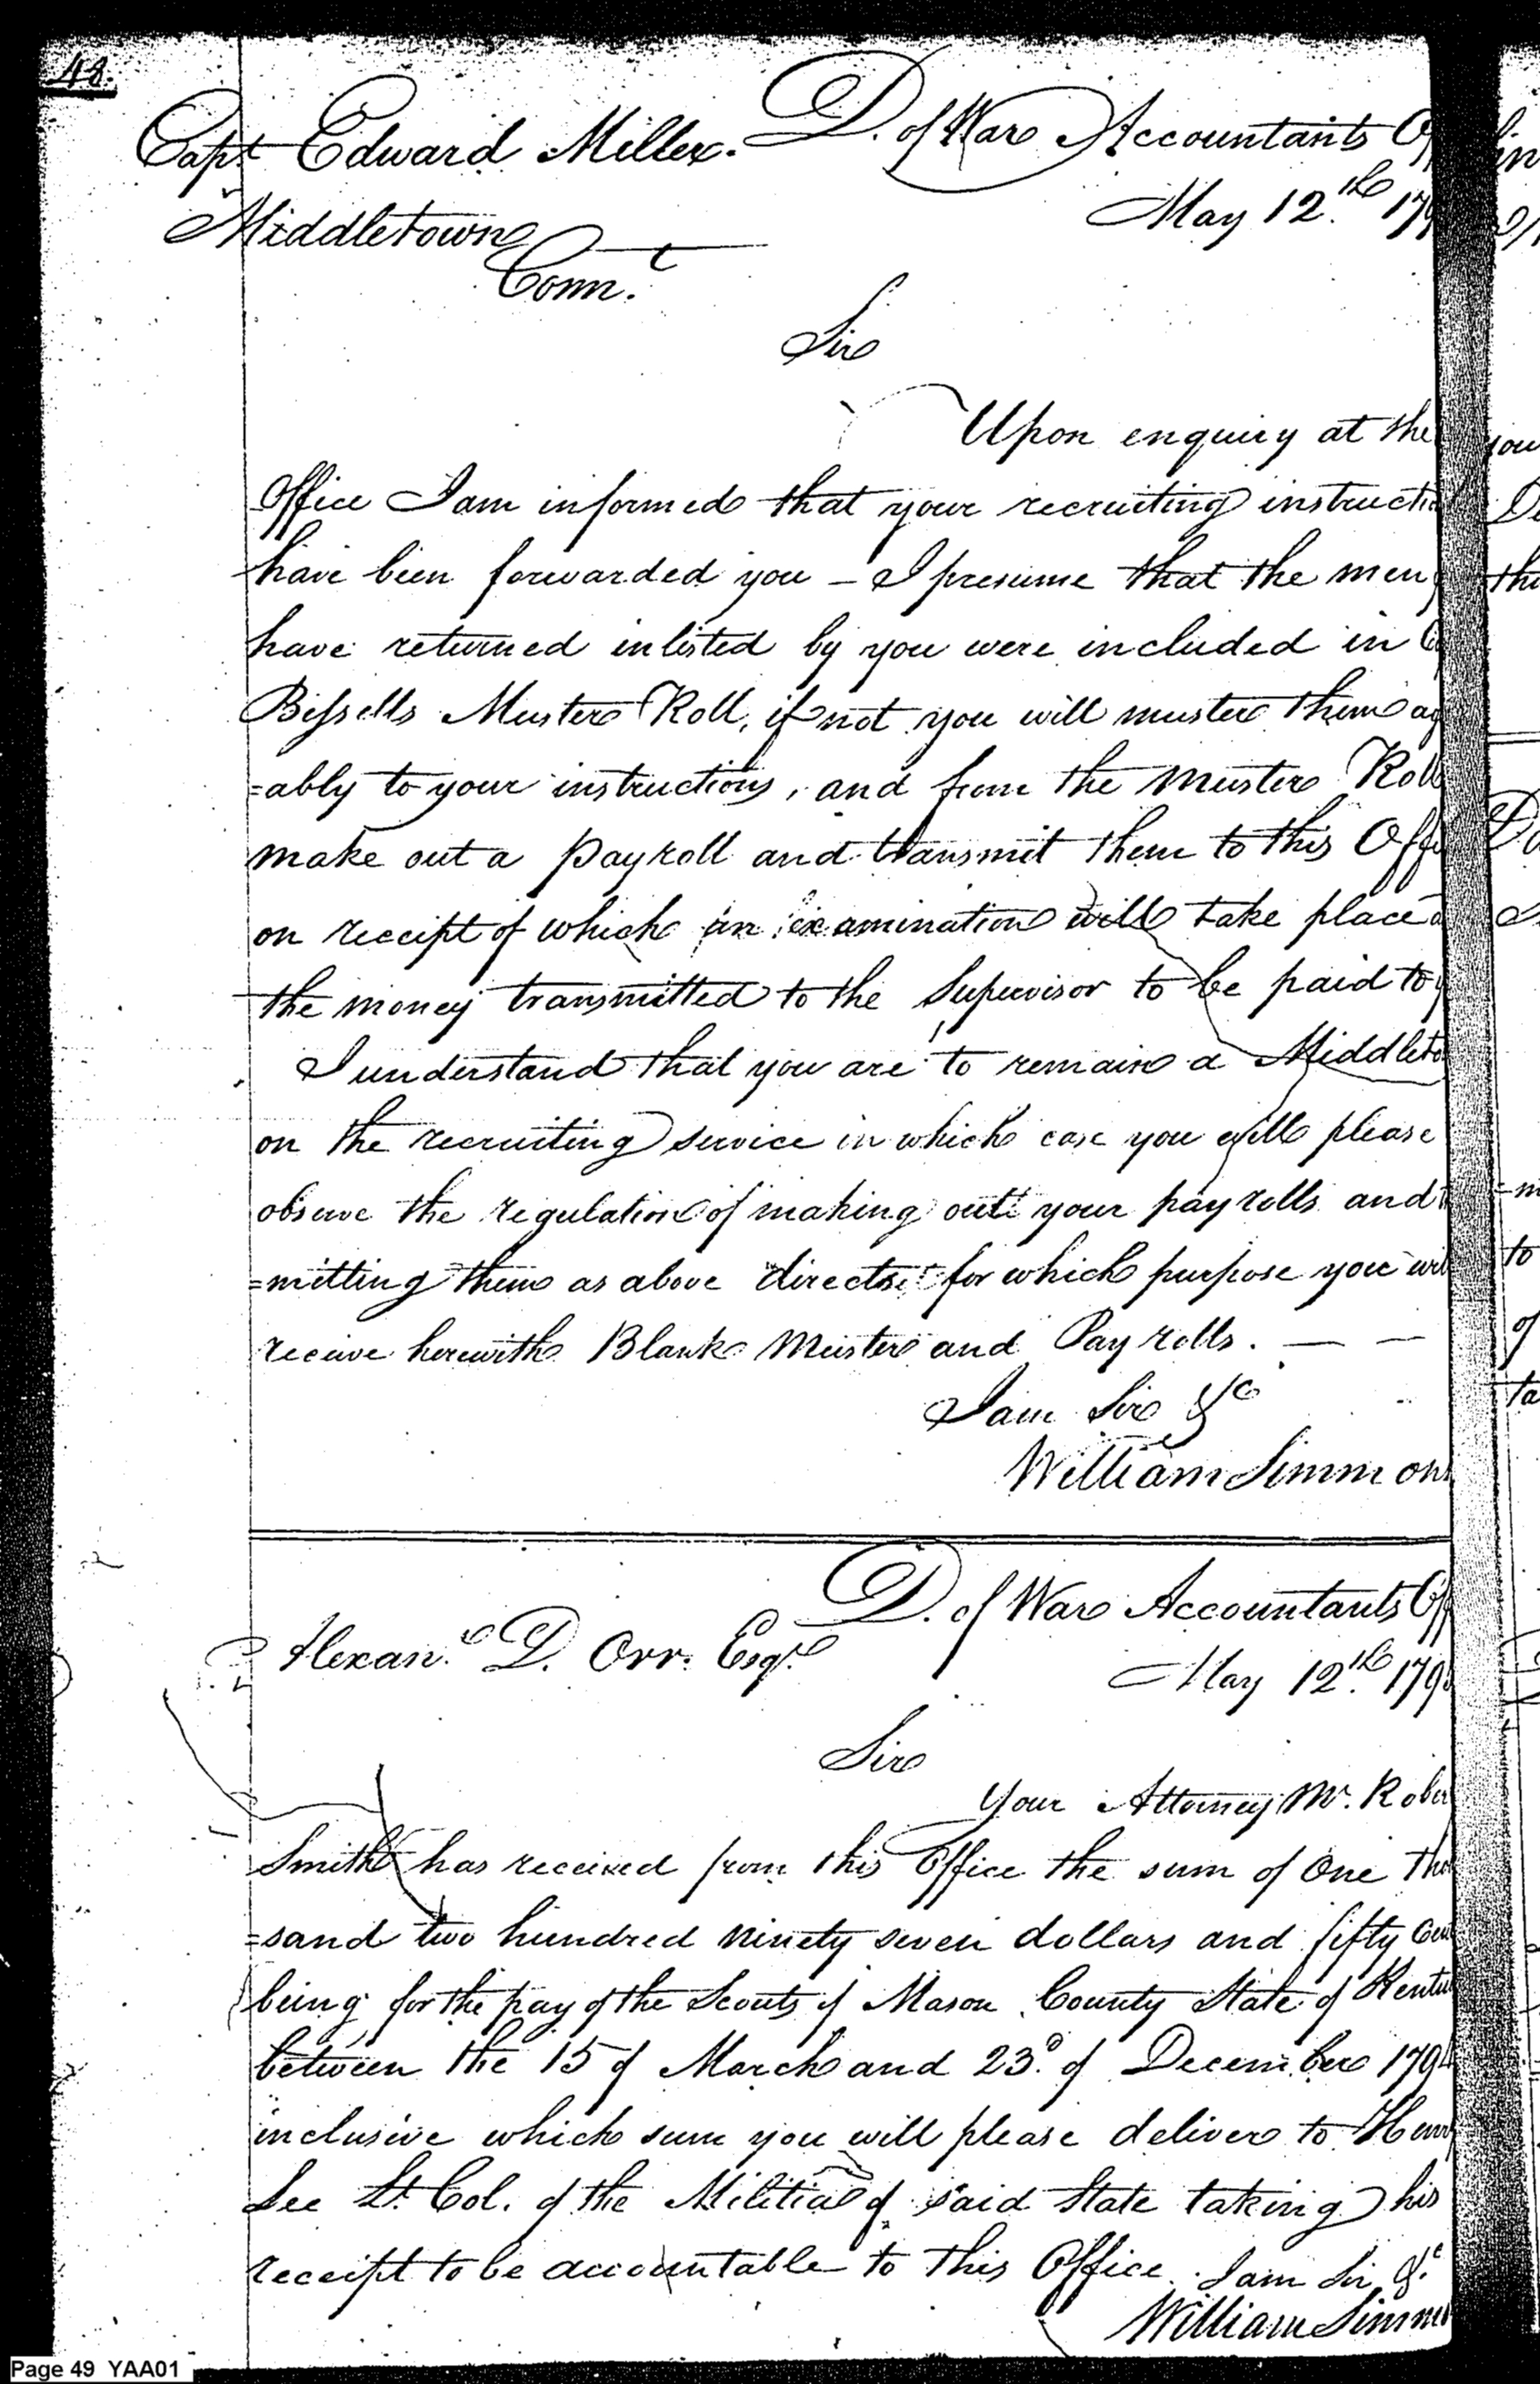 48.
Capt Edward Miller. D. of War Accountants
Middletown May 12.th 179
Connt.
Sir
Upon enquiry at the
Office I am informed that your recruiting instructi
have been forwarded you – I presume that the men
have returned inlisted by you were included in
Bissells Muster Roll, if not you will muster them ag
=ably to your instructions, and from the Muster Roll
make out a payroll and transmit them to this Offi
on receipt of which an examination will take place
the money transmitted to the Supervisor to be paid to
I understand that you are to remain a Middleto
on the recruiting service in which case you will please
observe the regulation of making out your pay rolls and
=mitting them as above directed for which purpose you wil
receive herewith Blank Muster and Pay rolls. — —
I am Sir &c
William Simmons
D. of War Accountants Off
Alexanr. D. Orr. Esqr.
May 12th. 179
Sir
Your Attorney Mr. Rober
Smith has received from this Office the sum of One Tho
=sand two hundred ninety seven dollars and fifty Cen
being for the pay of the Scouts of Mason County State of Kentu
between the 15 of March and 23d. of December 1794
inclusive which sum you will please deliver to Henry
Lee Lt. Col. of the Militia of said State taking his
receipt to be accountable to this Office. I am Sir &c
William Simmo
Page 49 YAA01